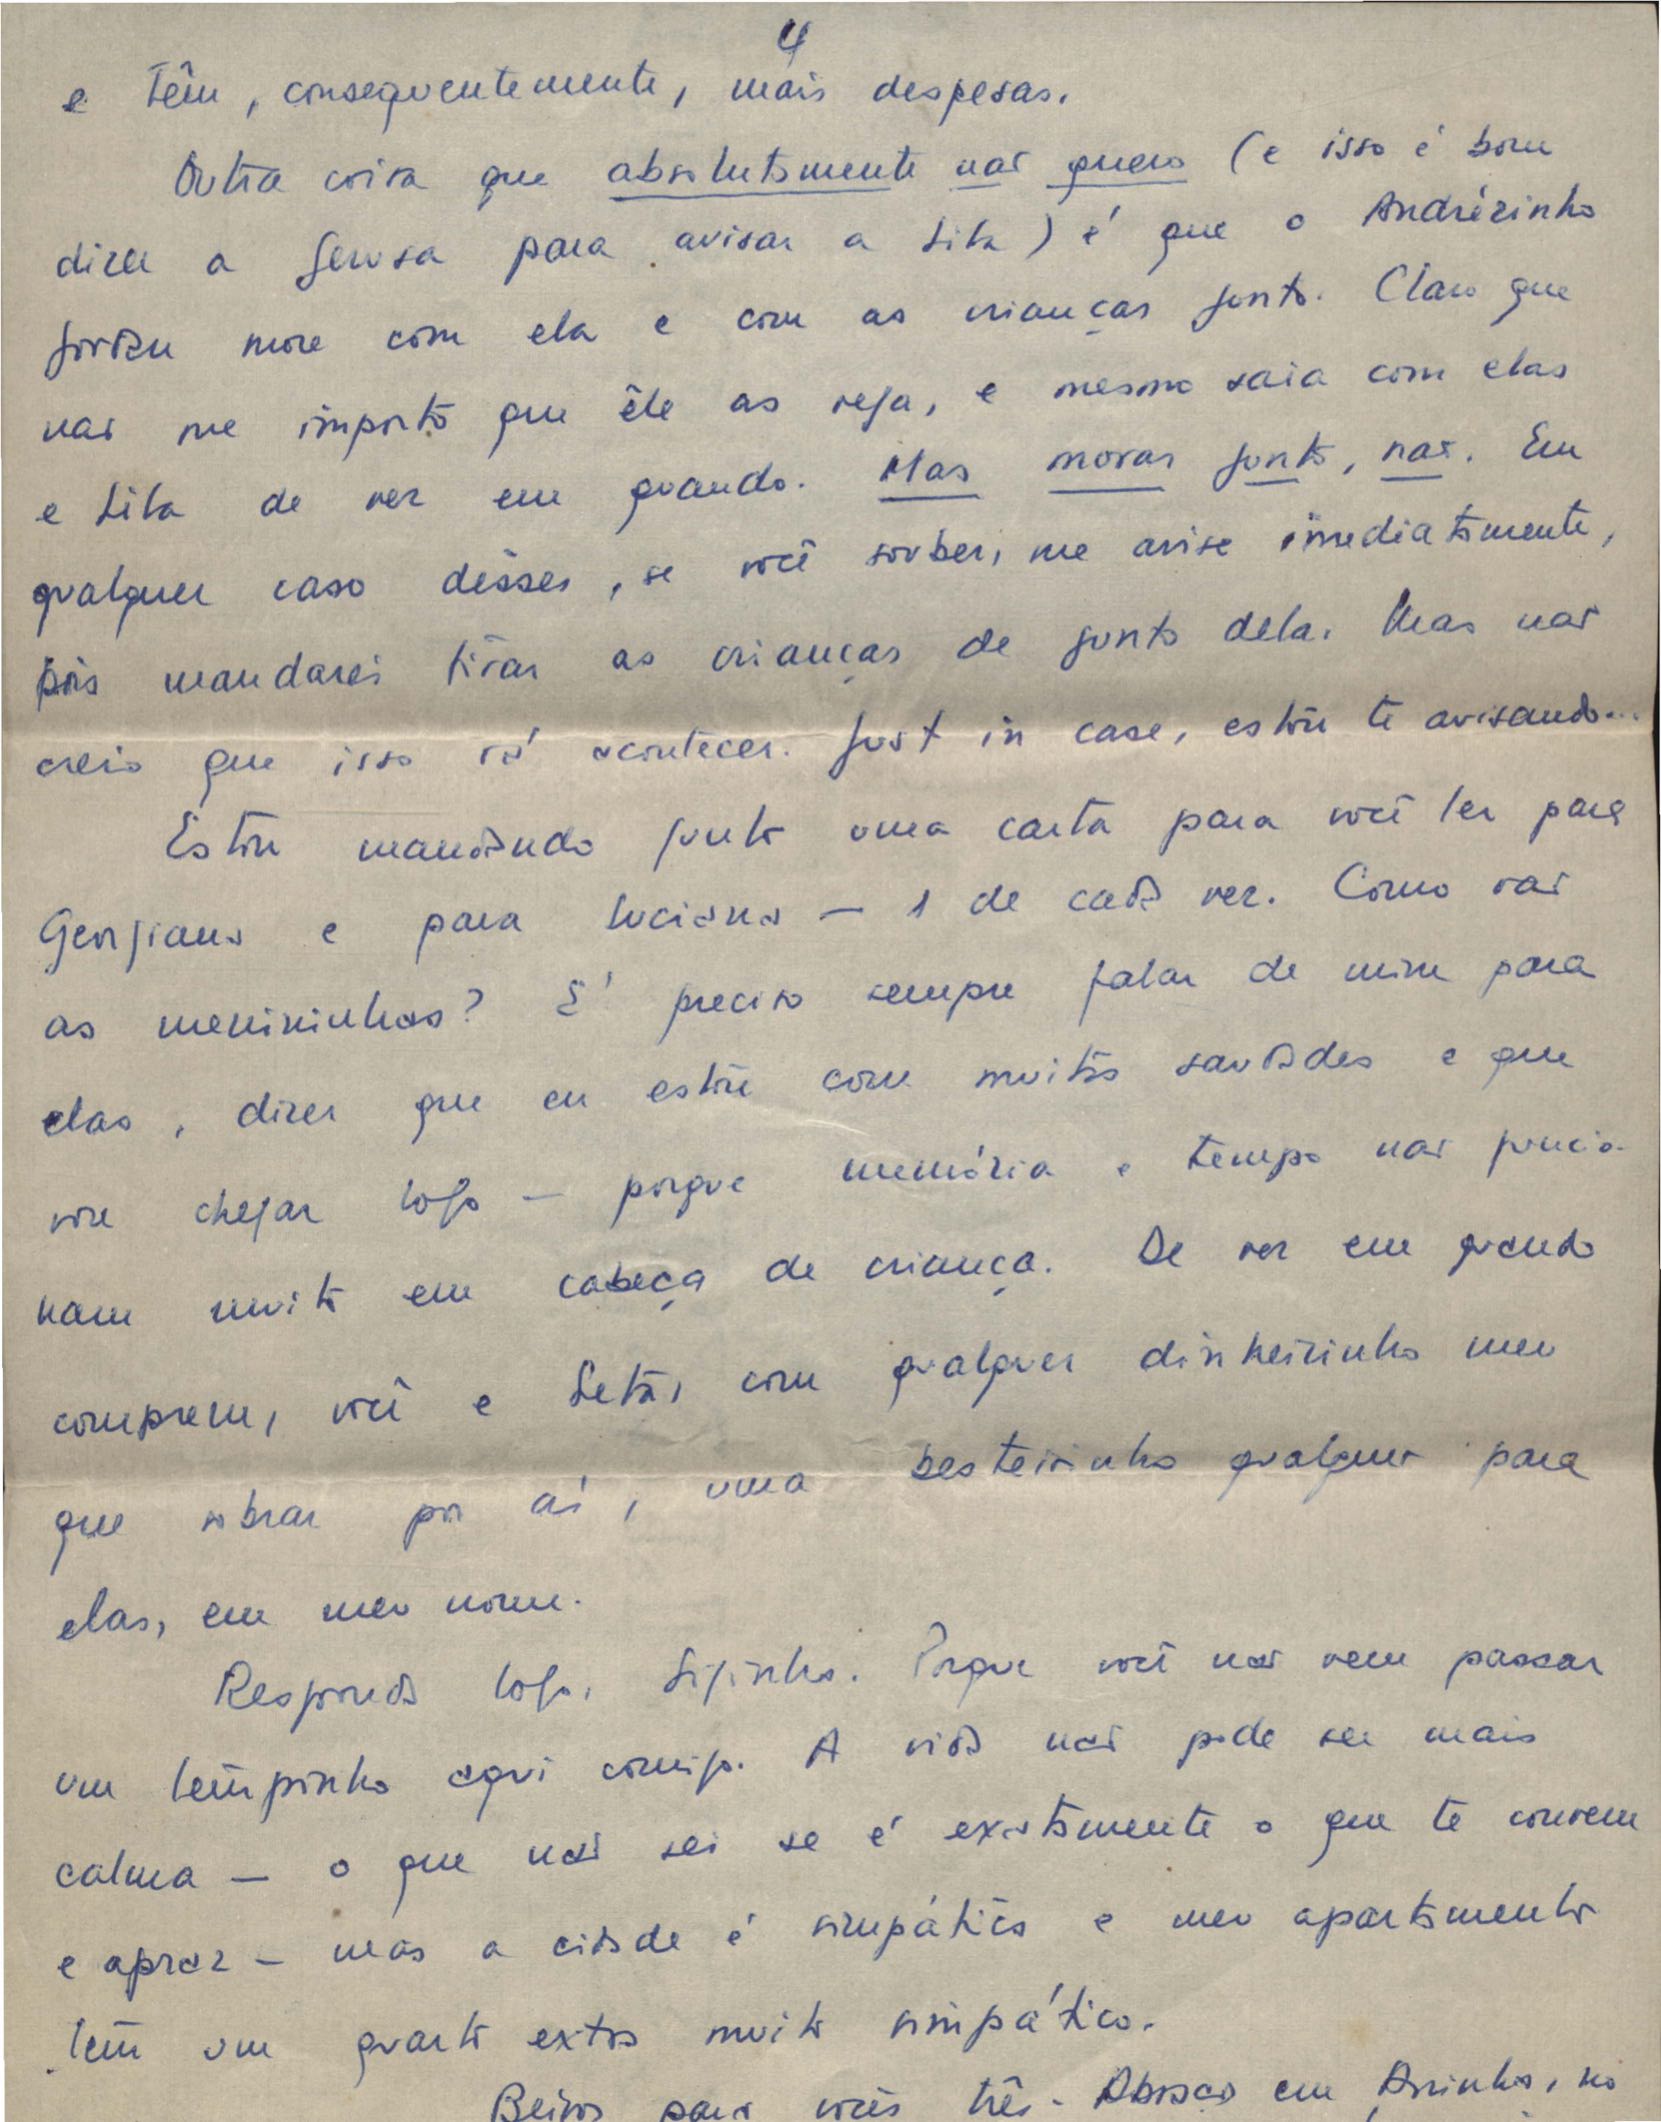 4
e têm, consequentemente, mais despesas.
Outra coisa que absolutamente não quero (e isso é bom
dizer a Gerusa para avisar a Lila) é que o Andrèzinho
Jordan more com ela e com as crianças junto. Claro que
não me importo que êle as veja, e mesmo saia com elas
e Lila de vez em quando. Mas morar junto, não. Em
qualquer caso dêsses, se você souber, me avise imediatamente,
pois mandarei tirar as crianças de junto dela. Mas não
creio que isso vá acontecer. Just in case, estou te avisando...
Estou mandando junto uma carta para você ler para
Georgiana e para Luciana — 1 de cada vez. Como vão
as menininhas? É preciso sempre falar de mim para
elas, dizer que eu estou com muitas saudades e que
vou chegar logo — porque memória e tempo não funcio-
nam muito em cabeça de criança. De vez em quando
comprem, você e Leta, com qualquer dinheirinho meu
que sobrar por aí, uma besteirinha qualquer para
elas, em meu nome.
Responda logo, Giginha. Porque você não vem passar
um tempinho aqui comigo. A vida não pode ser mais
calma — o que não sei se é exatamente o que te convem
e apraz — mas a cidade é simpática e meu apartamento
tem um quarto extra muito simpático.
Beijos para vocês três. Abraço em no